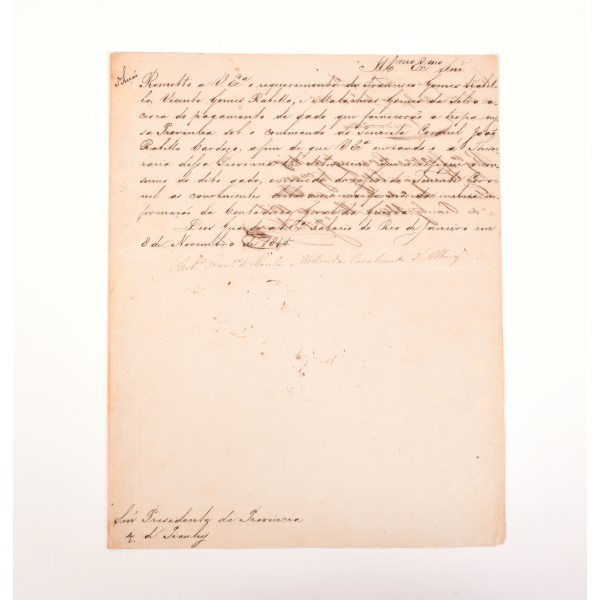 Ill.mo Ex.mo Snr.
Remetto a V Ex.a o requerimento de Francisco Gomes Rabel-
lo, Vicente Gomes Rabello, e Malachias Gomes da Silva a
cerca do pagamento de gado que fornecerão a tropa nes-
sa Provincia sob o commando do Tenente Coronel João
Rabello Cardozo, afim de que V Ex.a enviando-o a Thesou-
raria dessa Provincia
sumo do dito gado, exigindo do referido Tenente Coro-
nel as convenientes na in-
formação da Contadoria Geral da Guerra.
Deos Guarde a V Ex.a Palacio do Rio de Janeiro em
8 de Novembro de 1845
Ant.o Fran.co de Paula e Hollanda Cavalcanti d'Albuq.
Snr. Presidente da Provincia
de Piauhy